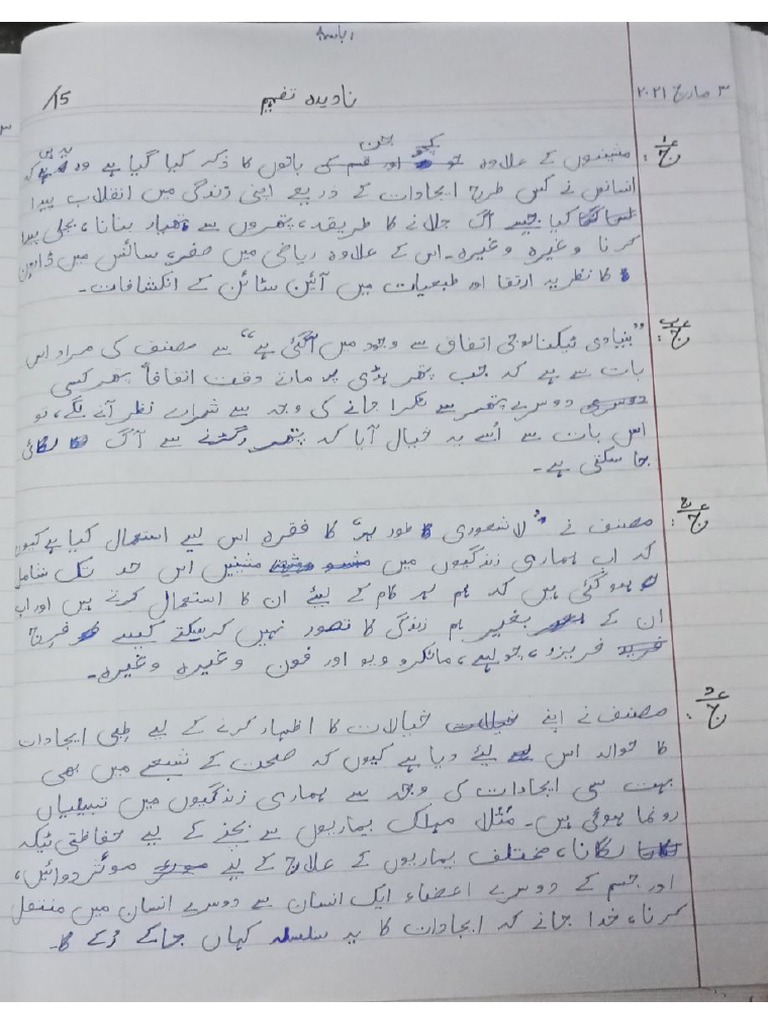 ۳ مارچ ۲۰۲۱
نادیدہ تفہیم
/15
ج: مشینوں کے علاوہ جن باتوں کا ذکر کیا گیا ہے وہ یہ ہیں کہ
انسانوں نے کس طرح ایجادات کے ذریعے اپنی زندگی میں انقلاب پیدا
کیا جیسے آگ جلانے کا طریقہ، پتھروں سے ہتھیار بنانا، بجلی پیدا
کرنا وغیرہ وغیرہ۔ اس کے علاوہ ریاضی میں صفر، سائنس میں ڈارون
کا نظریہ ارتقا اور طبعیات میں آئین سٹائن کے انکشافات۔
ج: "بنیادی ٹیکنالوجی اتفاق سے وجود میں آگئی ہے" سے مصنف کی مراد اس
بات سے ہے کہ جب پتھر ہڈی پر مارتے وقت اتفاقاً پتھر کسی
دوسرے پتھر سے ٹکرا جانے کی وجہ سے شرارے نظر آنے لگے، تو
اس بات سے اُسے یہ خیال آیا کہ پتھر رگڑنے سے آگ لگائی
جا سکتی ہے۔
ج: مصنف نے "لاشعوری طور پر" کا فقرہ اس لیے استعمال کیا ہے کیوں
کہ اب ہماری زندگیوں میں مشینیں اس حد تک شامل
ہو گئی ہیں کہ ہم ہر کام کے لیئے ان کا استعمال کرتے ہیں اور اب
ان کے بغیر ہم زندگی کا تصور نہیں کرسکتے جیسے فرج
فریزر، چولہے، مائکرو ویو اور فون وغیرہ وغیرہ۔
ج: مصنف نے اپنے خیالات کا اظہار کرنے کے لیے طبی ایجادات
کا حوالہ اس لیئے دیا ہے کیوں کہ صحت کے شعبے میں بھی
بہت سی ایجادات کی وجہ سے ہماری زندگیوں میں تبیلیاں
رونما ہوئی ہیں۔ مثلاً مہلک بیماریوں سے بچنے کے لیے حفاظتی ٹیکہ
لگانا، مختلف بیماریوں کے علاج کے لیے موئثر دوائیں،
اور جسم کے دوسرے اعضاء ایک انسان سے دوسرے انسان میں منتقل
کرنا، خدا جانے کہ ایجادات کا یہ سلسلہ کہاں جا کے رُکے گا۔